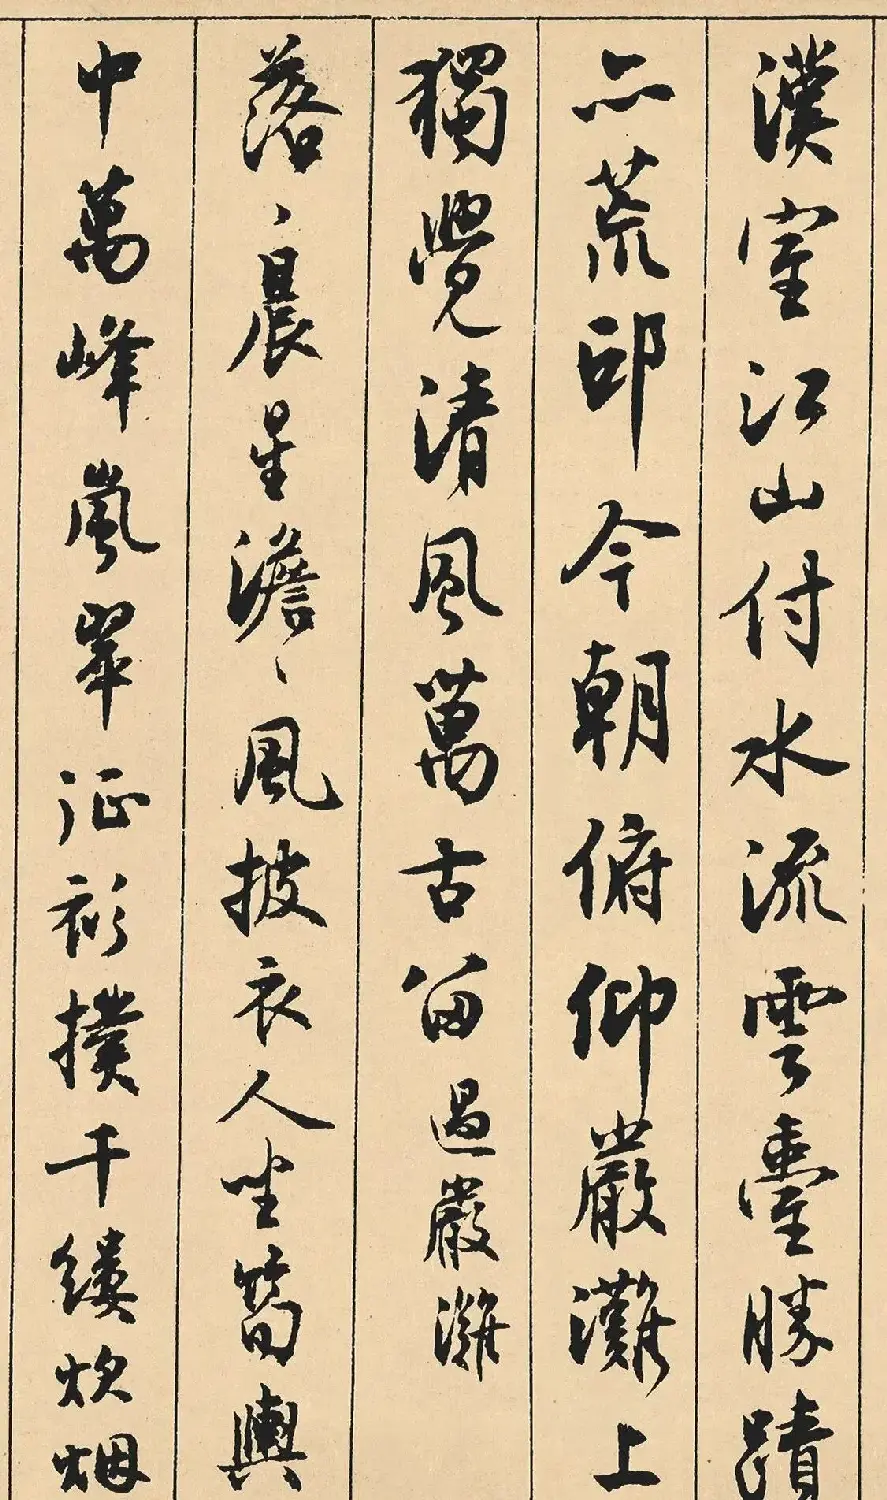 漢室江山付水流雲臺勝蹟
亦荒邱今朝俯仰嚴灘上
獨覺清風萬古留過嚴灘
落々晨星澹々風披衣人坐筍輿
中萬峰嵐翠征衫撲千縷炊烟